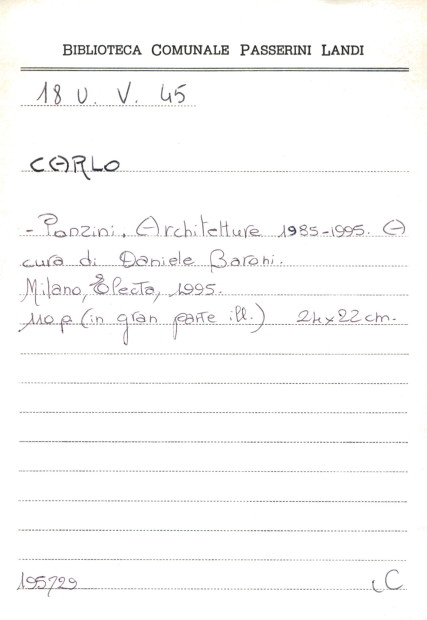 BIBLIOTECA COMUNALE PASSERINI LANDI
18 U. V. 45
CARLO
- Ponzini. Architetture 1985-1995. A
cura di Daniele Baroni.
Milano, Electa, 1995.
110 p (in gran parte ill.) 24x22 cm.
195729 iC